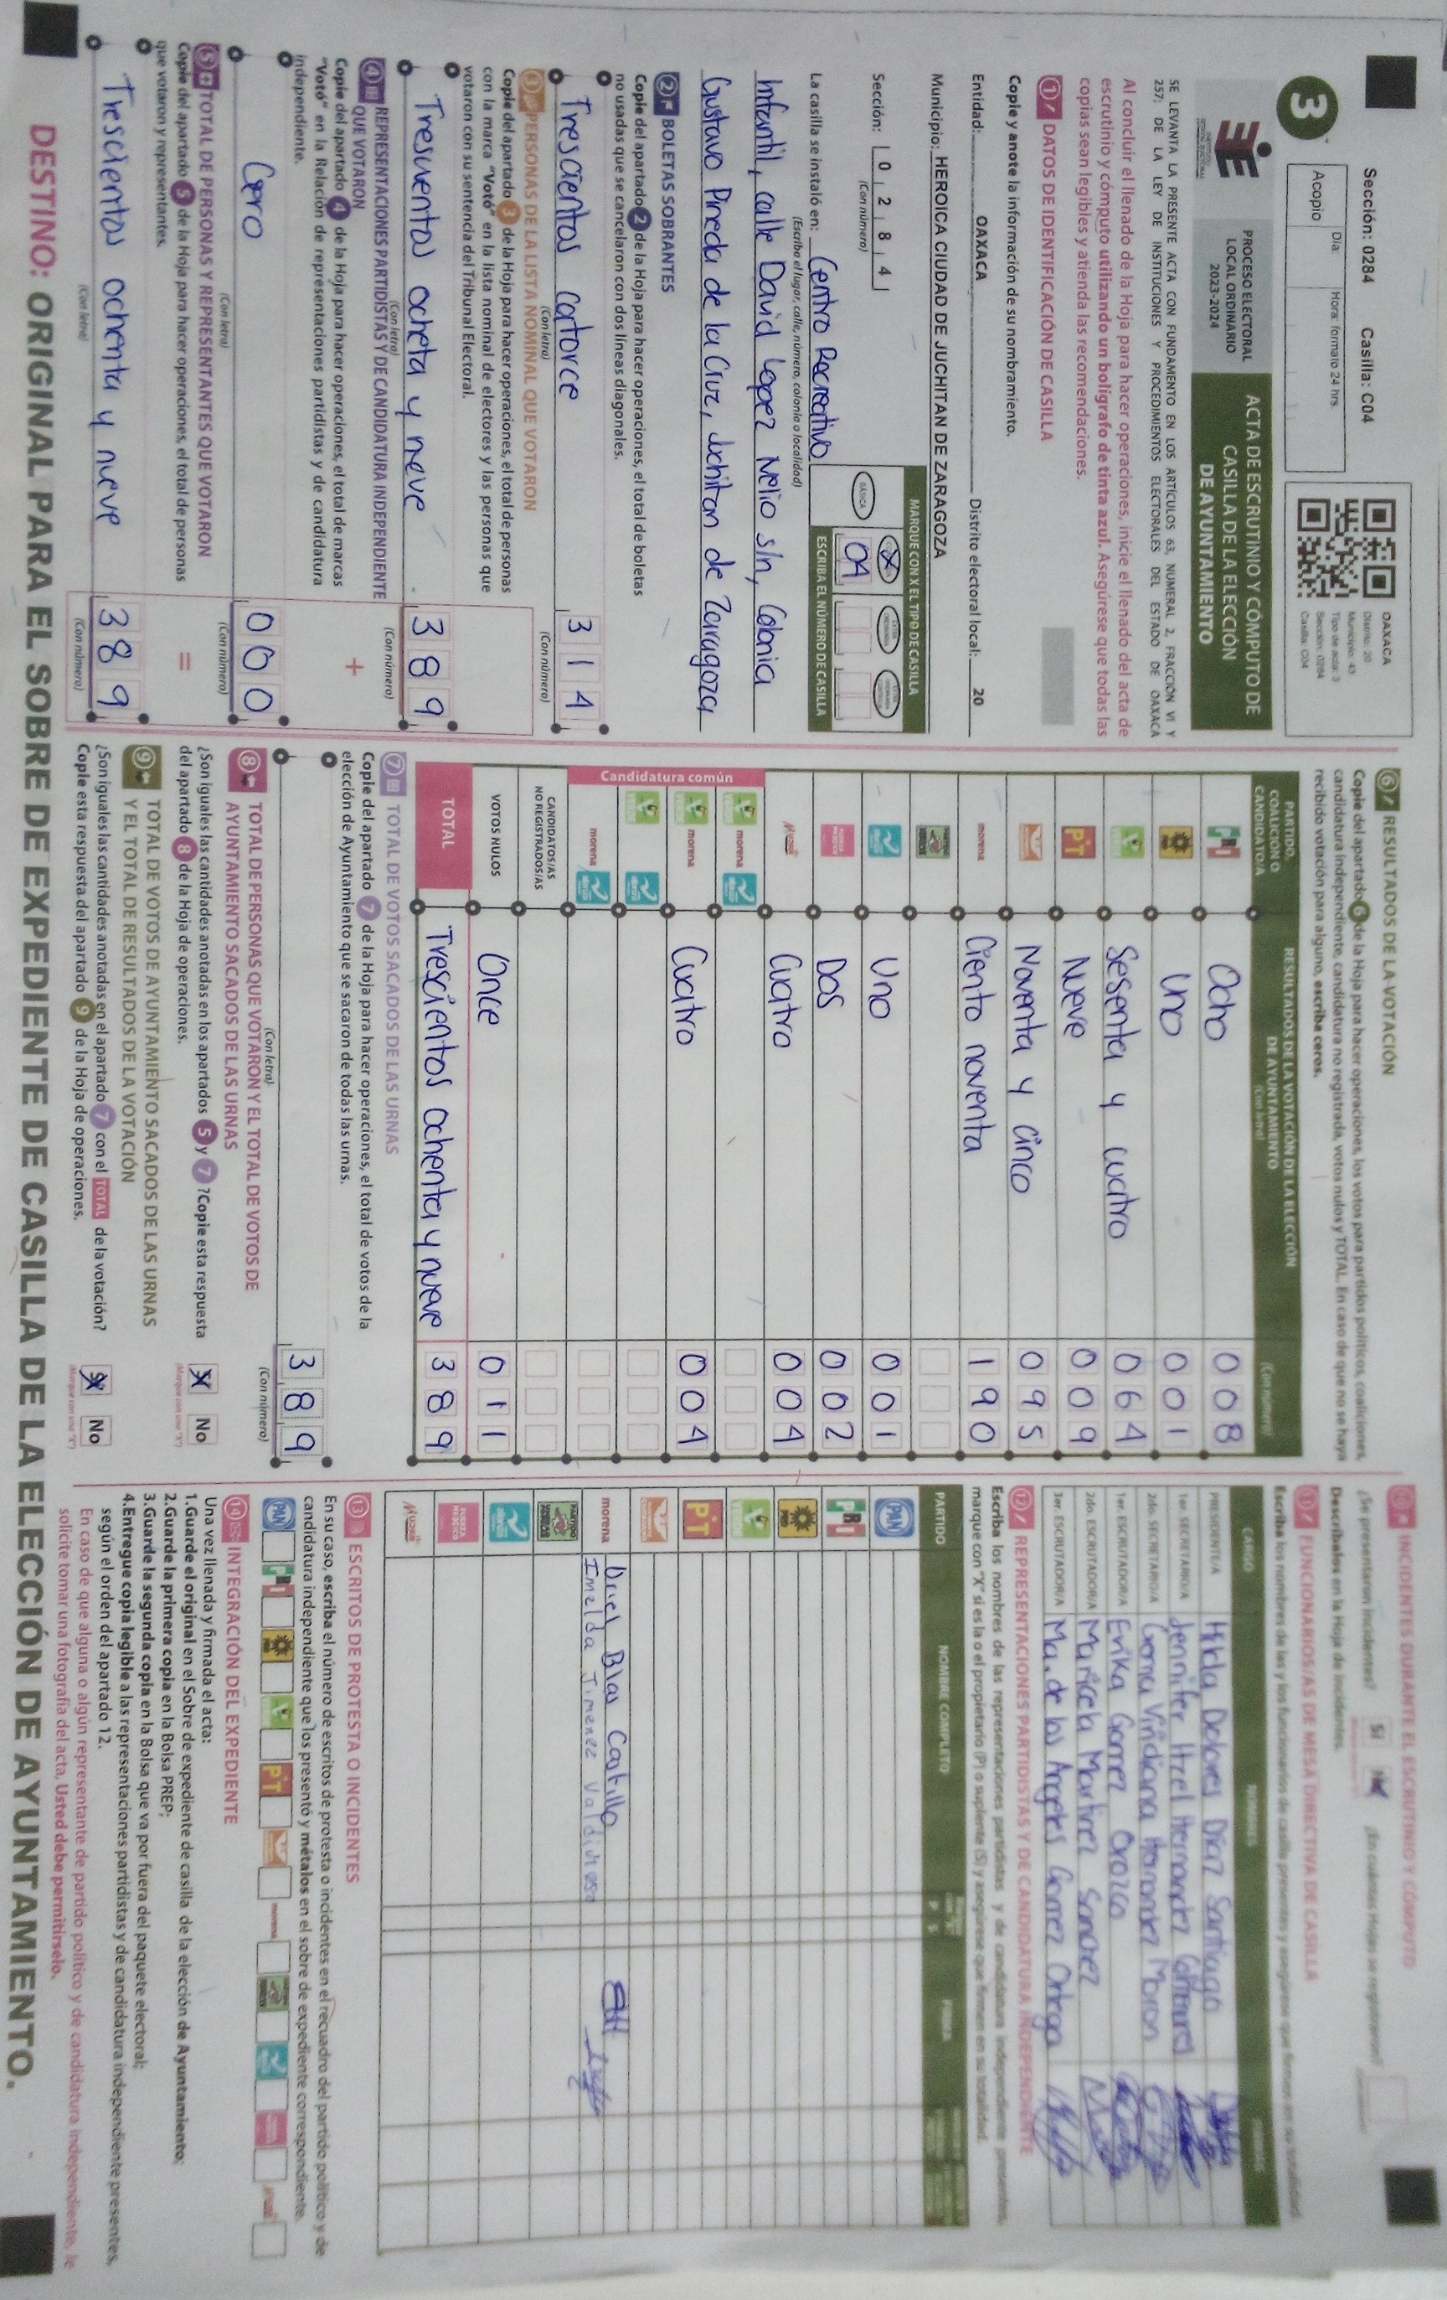 Sección: 0284 Casilla: C04
Día: Hora: formato 24 hrs.
Acopio
OAXACA
Distrito: 20
Municipio: 43
Tipo de acta: 3
Sección: 0284
Casilla: C04
3
PROCESO ELECTORAL
LOCAL ORDINARIO
2023-2024
ACTA DE ESCRUTINIO Y CÓMPUTO DE
CASILLA DE LA ELECCIÓN
DE AYUNTAMIENTO
SE LEVANTA LA PRESENTE ACTA CON FUNDAMENTO EN LOS ARTÍCULOS 63, NUMERAL 2, FRACCIÓN VI Y
257; DE LA LEY DE INSTITUCIONES Y PROCEDIMIENTOS ELECTORALES DEL ESTADO DE OAXACA
Al concluir el llenado de la Hoja para hacer operaciones, inicie el llenado del acta de
escrutinio y cómputo utilizando un bolígrafo de tinta azul. Asegúrese que todas las
copias sean legibles y atienda las recomendaciones.
1 DATOS DE IDENTIFICACIÓN DE CASILLA
Copie y anote la información de su nombramiento.
Entidad: OAXACA Distrito electoral local: 20
Municipio: HEROICA CIUDAD DE JUCHITAN DE ZARAGOZA
Sección: 0 2 8 4
(Con número)
MARQUE CON X EL TIPO DE CASILLA
BÁSICA X
ESCRIBA EL NÚMERO DE CASILLA
04
La casilla se instaló en: Centro Recreativo
(Escriba el lugar, calle, número, colonia o localidad)
Infantil, calle David Lopez Nelio s/n, Colonia
Gustavo Pineda de la Cruz, Juchitan de Zaragoza
2 BOLETAS SOBRANTES
Copie del apartado 2 de la Hoja para hacer operaciones, el total de boletas
no usadas que se cancelaron con dos líneas diagonales.
Trescientos catorce 3 1 4
(Con letra) (Con número)
3 PERSONAS DE LA LISTA NOMINAL QUE VOTARON
Copie del apartado 3 de la Hoja para hacer operaciones, el total de personas
con la marca "Votó" en la lista nominal de electores y las personas que
votaron con su sentencia del Tribunal Electoral.
Trescientos ocheta y nueve 3 8 9
(Con letra) (Con número)
4 REPRESENTACIONES PARTIDISTAS Y DE CANDIDATURA INDEPENDIENTE
QUE VOTARON +
Copie del apartado 4 de la Hoja para hacer operaciones, el total de marcas
"Votó" en la Relación de representaciones partidistas y de candidatura
independiente.
Cero 0 0 0
(Con letra) (Con número)
5 TOTAL DE PERSONAS Y REPRESENTANTES QUE VOTARON =
Copie del apartado 5 de la Hoja para hacer operaciones, el total de personas
que votaron y representantes.
Trescientos ochenta y nueve 3 8 9
(Con letra) (Con número)
6 RESULTADOS DE LA VOTACIÓN
Copie del apartado 6 de la Hoja para hacer operaciones, los votos para partidos políticos, coaliciones,
candidatura independiente, candidatura no registrada, votos nulos y TOTAL. En caso de que no se haya
recibido votación para alguno, escriba ceros.
PARTIDO,
COALICIÓN O
CANDIDATO/A
RESULTADOS DE LA VOTACIÓN DE LA ELECCIÓN
DE AYUNTAMIENTO
(Con letra) (Con número)
PRI Ocho 0 0 8
PRD Uno 0 0 1
Sesenta y cuatro 0 6 4
PT Nueve 0 0 9
Noventa y cinco 0 9 5
morena Ciento noventa 1 9 0
Uno 0 0 1
FUERZA MÉXICO Dos 0 0 2
Mujer Cuatro 0 0 4
Candidatura común
morena
morena Cuatro 0 0 4
morena
CANDIDATOS/AS
NO REGISTRADOS/AS
VOTOS NULOS Once 0 1 1
TOTAL Trescientos ochenta y nueve 3 8 9
7 TOTAL DE VOTOS SACADOS DE LAS URNAS
Copie del apartado 7 de la Hoja para hacer operaciones, el total de votos de la
elección de Ayuntamiento que se sacaron de todas las urnas.
3 8 9
(Con letra) (Con número)
8 TOTAL DE PERSONAS QUE VOTARON Y EL TOTAL DE VOTOS DE
AYUNTAMIENTO SACADOS DE LAS URNAS
¿Son iguales las cantidades anotadas en los apartados 5 y 7? Copie esta respuesta
del apartado 8 de la Hoja de operaciones.
X No
9 TOTAL DE VOTOS DE AYUNTAMIENTO SACADOS DE LAS URNAS
Y EL TOTAL DE RESULTADOS DE LA VOTACIÓN
¿Son iguales las cantidades anotadas en el apartado 7 con el TOTAL de la votación?
Copie esta respuesta del apartado 9 de la Hoja de operaciones.
X No
INCIDENTES DURANTE EL ESCRUTINIO Y CÓMPUTO
¿Se presentaron incidentes? Sí ¿En cuántas Hojas se registraron?
Descríbalos en la Hoja de Incidentes.
11 FUNCIONARIOS/AS DE MESA DIRECTIVA DE CASILLA
Escriba los nombres de las y los funcionarios de casilla presentes y asegúrese que firmen en su totalidad
CARGO NOMBRES
PRESIDENTE/A Hilda Dolores Díaz Santiago
1er. SECRETARIO/A Jennifer Itzel Hernandez
2do. SECRETARIO/A Viridiana Hernandez Moron
1er. ESCRUTADOR/A Erika Gomez Orozco
2do. ESCRUTADOR/A Maricela Martinez Sanchez
3er. ESCRUTADOR/A Ma. de los Angeles Gomez Ortega
12 REPRESENTACIONES PARTIDISTAS Y DE CANDIDATURA INDEPENDIENTE
Escriba los nombres de las representaciones partidistas y de candidatura independiente presentes,
marque con "X" si es la o el propietario (P) o suplente (S) y asegúrese que firmen en su totalidad.
PARTIDO NOMBRE COMPLETO P S FIRMA
PAN
PRI
PRD
PT
morena Blas Castillo
Imelda Jimenez Valdivieso
FUERZA MÉXICO
Mujer
13 ESCRITOS DE PROTESTA O INCIDENTES
En su caso, escriba el número de escritos de protesta o incidentes en el recuadro del partido político y de
candidatura independiente que los presentó y métalos en el sobre de expediente correspondiente.
PAN PRI PRD PT morena
14 INTEGRACIÓN DEL EXPEDIENTE
Una vez llenada y firmada el acta:
1.Guarde el original en el Sobre de expediente de casilla de la elección de Ayuntamiento;
2.Guarde la primera copia en la Bolsa PREP;
3.Guarde la segunda copia en la Bolsa que va por fuera del paquete electoral;
4.Entregue copia legible a las representaciones partidistas y de candidatura independiente presentes,
según el orden del apartado 12.
En caso de que alguna o algún representante de partido político y de candidatura independiente, le
solicite tomar una fotografía del acta, Usted debe permitírselo.
DESTINO: ORIGINAL PARA EL SOBRE DE EXPEDIENTE DE CASILLA DE LA ELECCIÓN DE AYUNTAMIENTO.